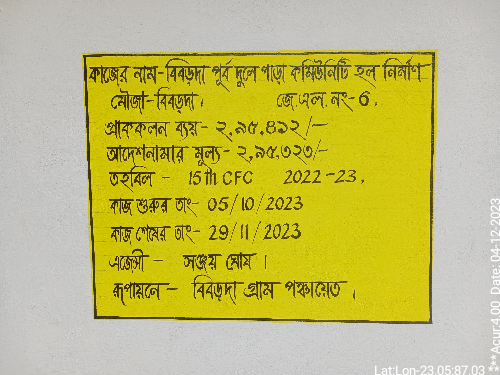 কাজের নাম-বিবড়দা পূর্ব দুলে পাড়া কমিউনিটি হল নির্মাণ
মৌজা-বিবড়দা। জে.এল.নং-6.
প্রাককলন ব্যয় - ২,৯৫,৪৯২/-
আদেশনামার মূল্য - ২,৯৫,৩২৩/-
তহবিল - 15th CFC 2022-23.
কাজ শুরুর তাং- 05/10/2023
কাজ শেষের তাং- 29/11/2023
এজেন্সী - সঞ্জয় ঘোষ।
রূপায়নে - বিবড়দা গ্রাম পঞ্চায়েত।
Lat:Lon-23.05:87.03
***Acur:4.00, Date: 04-12-2023